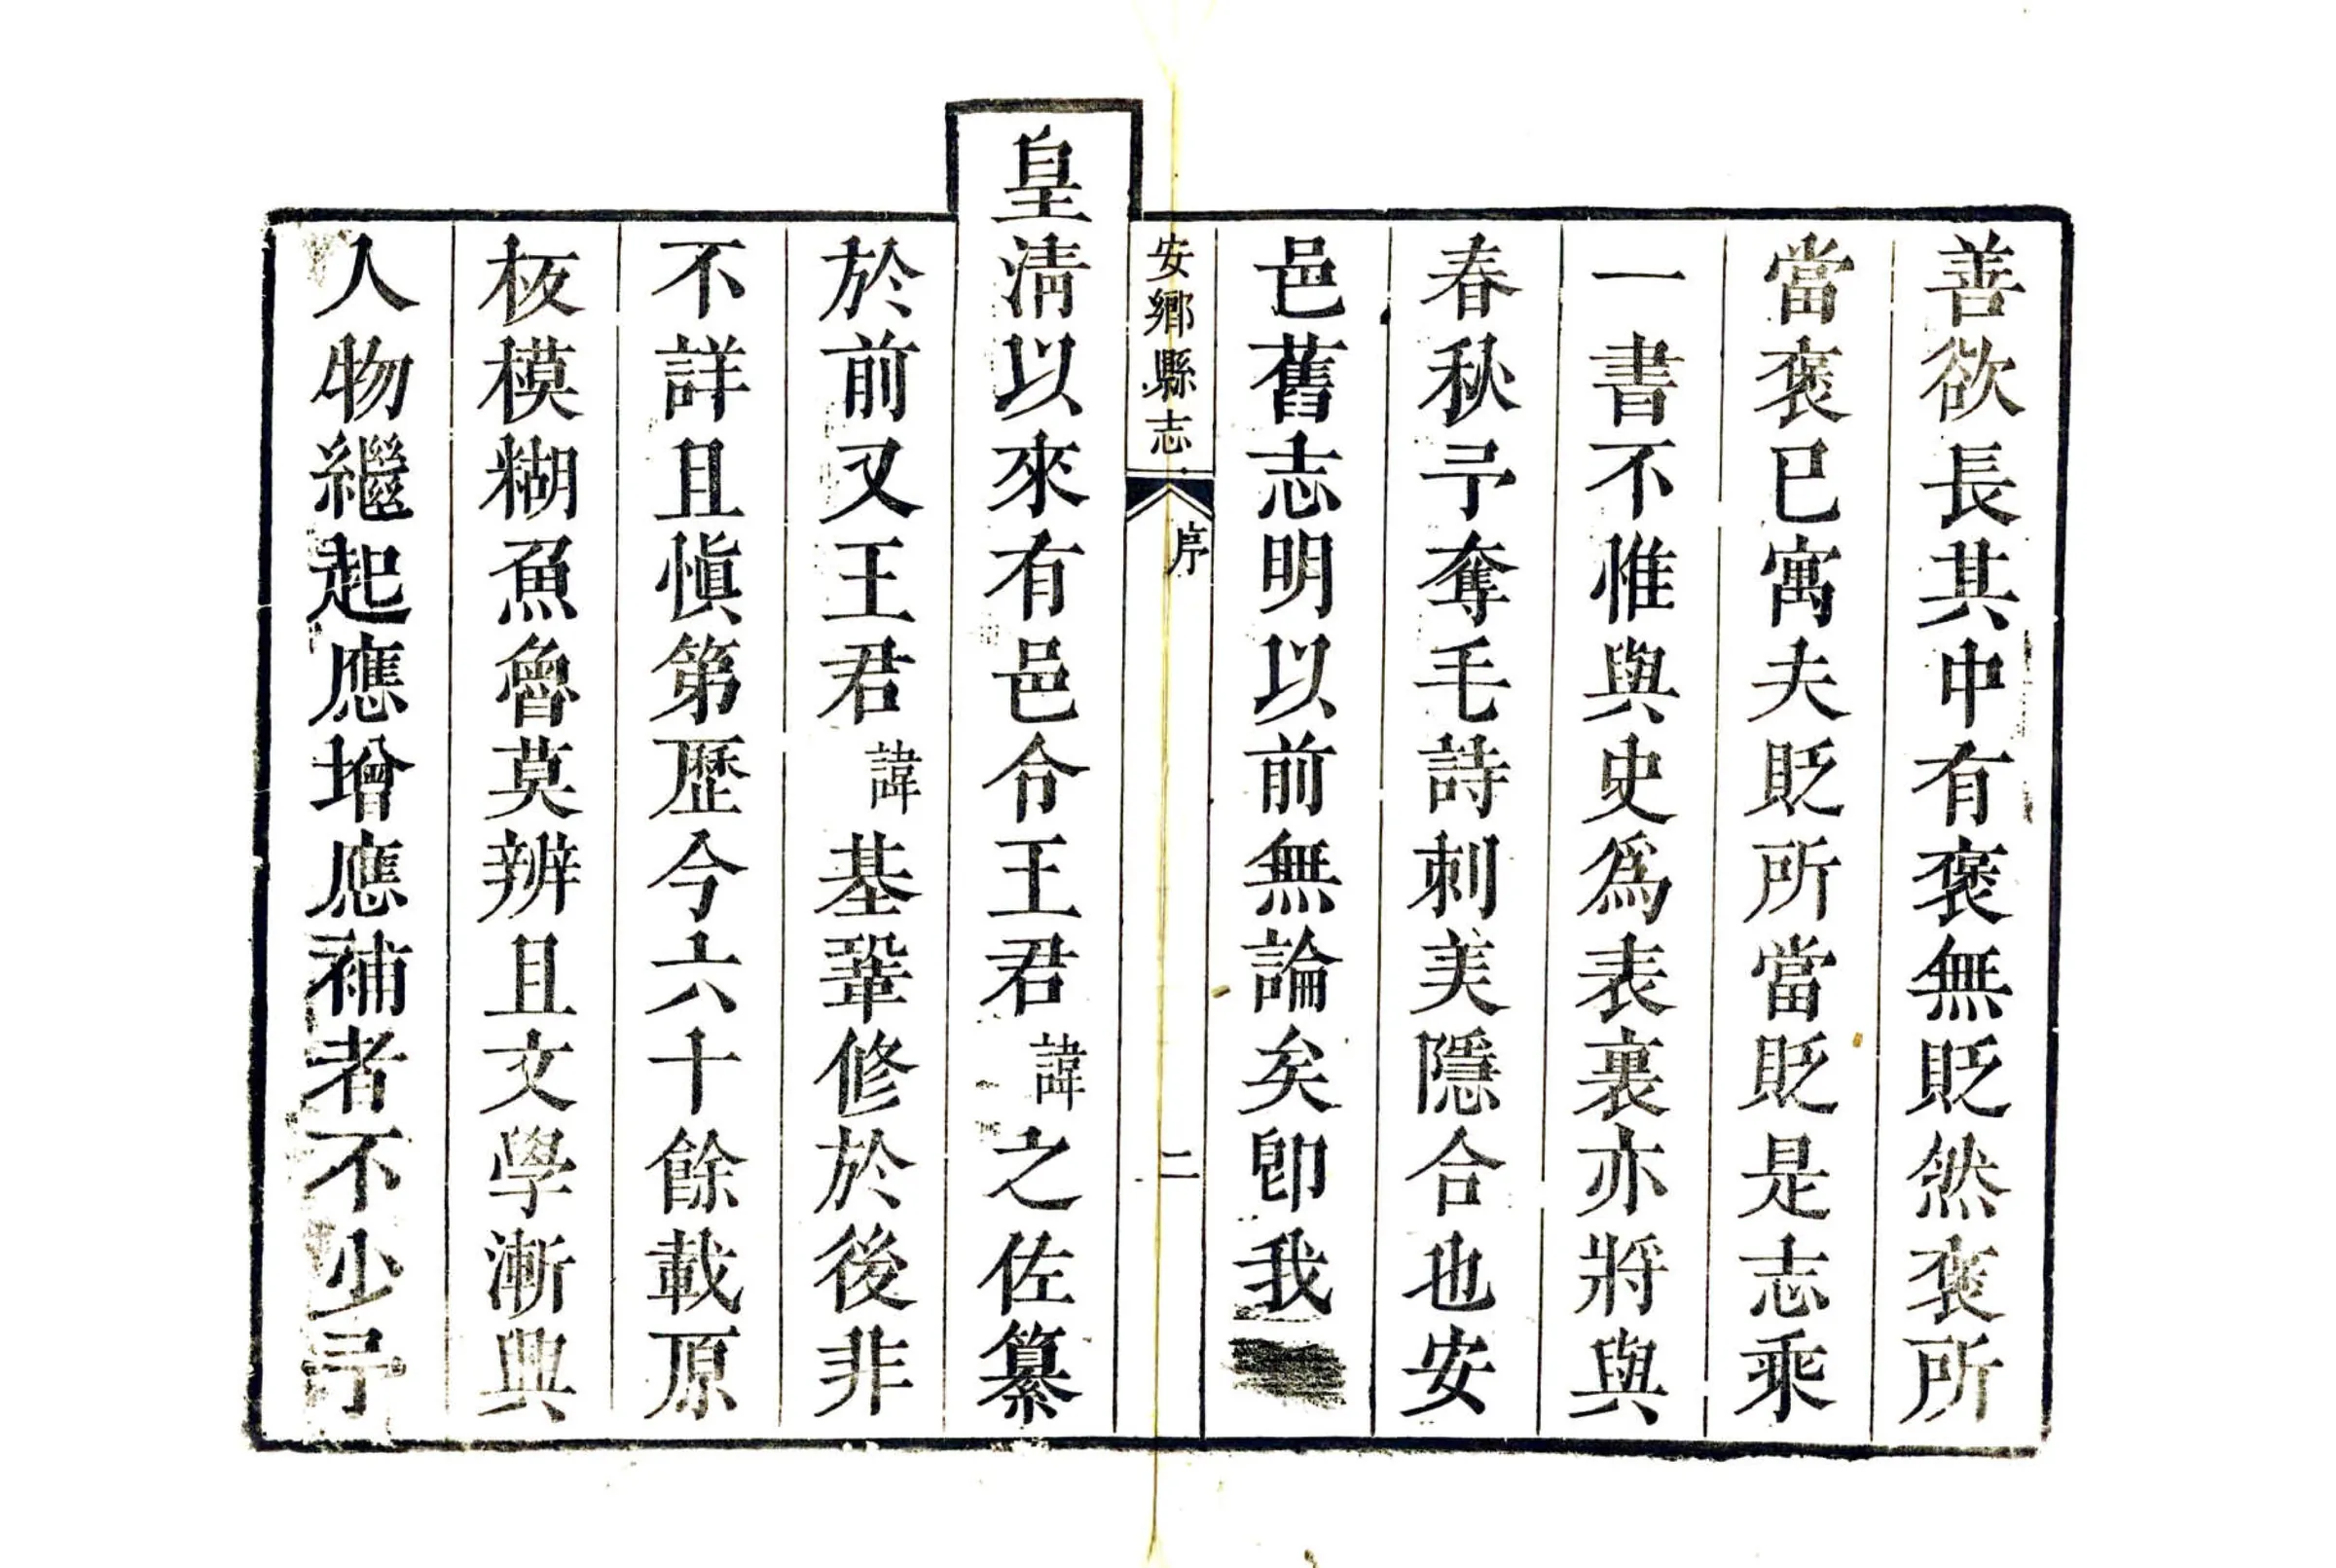 善欲長其中有褒無貶然褒所
當褒已寓夫貶所當貶是志乘
一書不惟與史爲表裏亦將與
春秋予奪毛詩刺美隱合也安
邑舊志明以前無論矣卽我
安鄉縣志 序 二
皇淸以來有邑令王君諱之佐纂
於前又王君諱基鞏修於後非
不詳且愼第歷今六十餘載原
板模糊魚魯莫辨且文學漸興
人物繼起應增應補者不少予